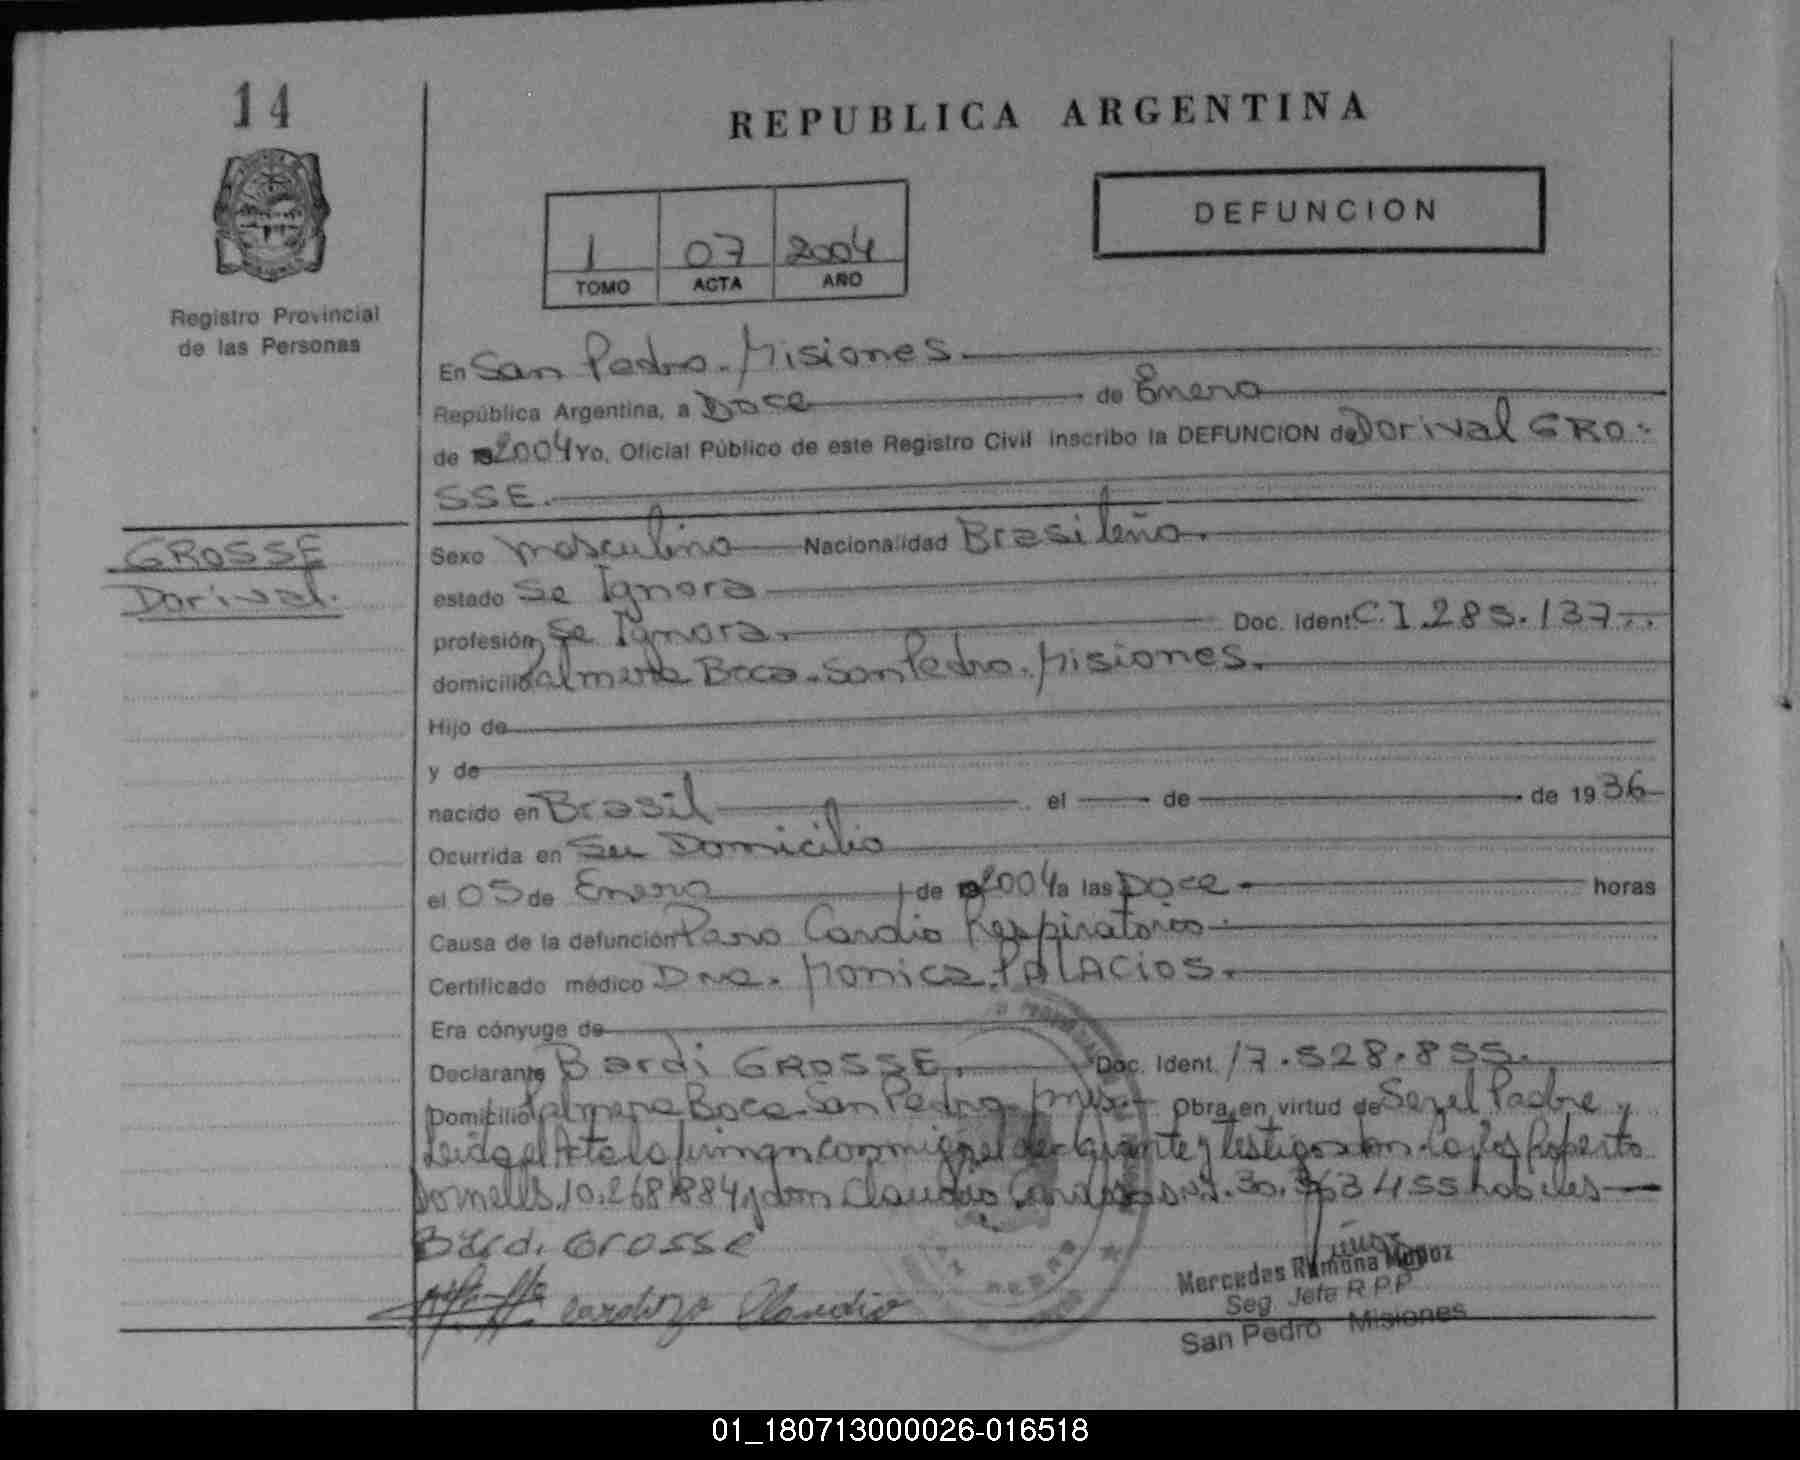 14
REPUBLICA ARGENTINA
DEFUNCION
1 07 2004
TOMO ACTA AÑO
Registro Provincial
de las Personas
En San Pedro. Misiones.
República Argentina, a Doce de Enero
de 2004 Yo, Oficial Público de este Registro Civil inscribo la DEFUNCION de Dorival GRO-
SSE.
GROSSE
Dorival.
Sexo masculino Nacionalidad Brasileña.
estado Se Ignora
profesión Se Ignora. Doc. Ident. C.I 285.137
domicilio Palmera Boca. San Pedro. Misiones.
Hijo de
y de
nacido en Brasil el de de 1936
Ocurrida en Su Domicilio
el 05 de Enero de 2004 a las Doce horas
Causa de la defunción Paro Cardio Respiratorio
Certificado médico Dra. Monica. PALACIOS.
Era cónyuge de
Declarante Bardi GROSSE. Doc. Ident. 17.528.855.
Domicilio Palmera Boca. San Pedro. Obra en virtud de Ser el Padre y
Leida el Acta la firman conmigo el declarante y testigos don Roberto
10.268.884 y don Claudio 30. habiles
Bardi Grosse
Cardozo Claudio
Mercedes Ramona Muñoz
Seg Jefe R.P.P
San Pedro Misiones
01_180713000026-016518